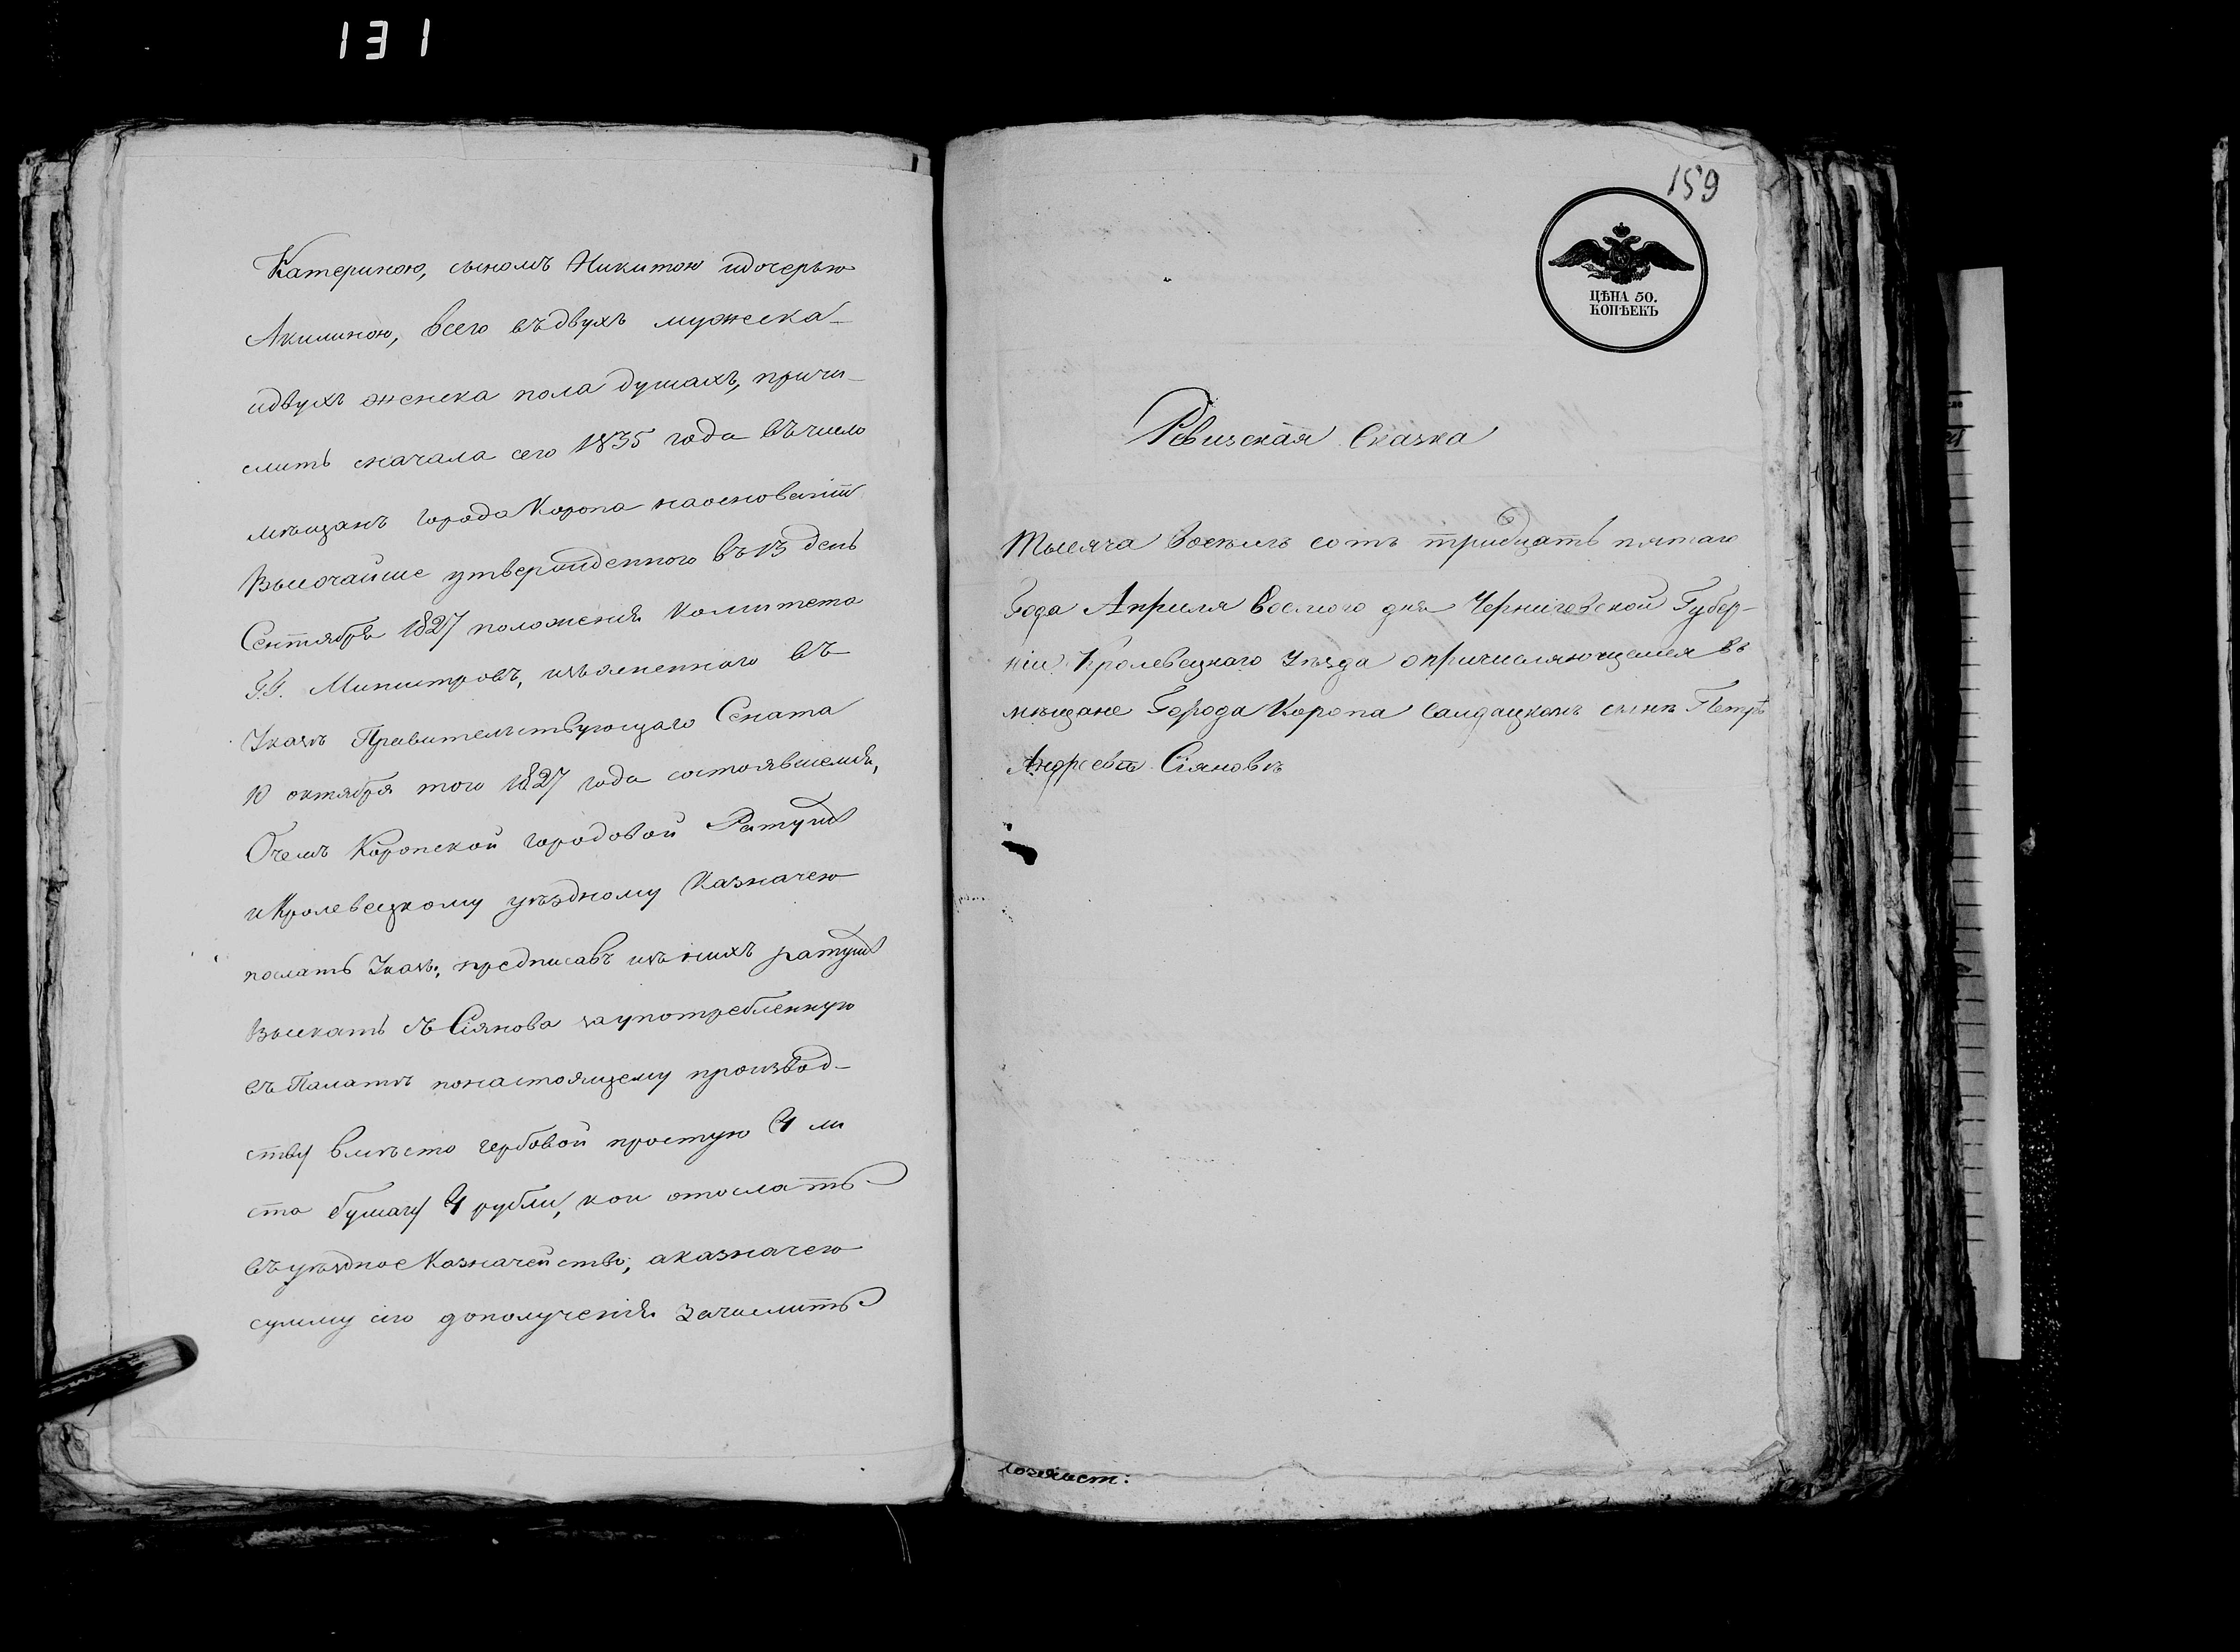 131
Катериною, сыномъ Никитою идочерью
Акилиною, всего въдвухъ мужеска-
идвухъ женска пола душахъ, причи-
слить сначала сего 1835 года въчисло
мѣщанъ города Коропа наосновании
Высочайше утвержденного въ 13 день
Сентября 1827 положенія Комитета
Г.Г. Министровъ, изъясненнаго въ
Указѣ Правительствующаго Сената
10 октября того 1827 года состоявшемся,
Очемъ Коропской городовой Ратуши
иКролевецкому уѣздному Казначею
послать Указы, предписавъ изъ нихъ ратуши
взыскать съ Сіянова заупотребленную
въ Палатѣ понастоящему производ-
ству вмѣсто гербовой простую 4 ли
ста бумагу 4 рубли, кои отослать
въ уѣздное Казначейство, аказначею
сумму сію дополученія зачислить
159
ЦѢНА 50.
КОПѢЕКЪ
Ревизская Сказка
Тысяча восемь сотъ тридцать пятаго
Года Апрѣля восмого дня Черниговской Губер-
ніи Кролевецкаго Уѣзда опричисляющемся въ
мѣщане Города Коропа Салдацкомъ сынѣ Петрѣ
Андреевѣ Сіяновѣ